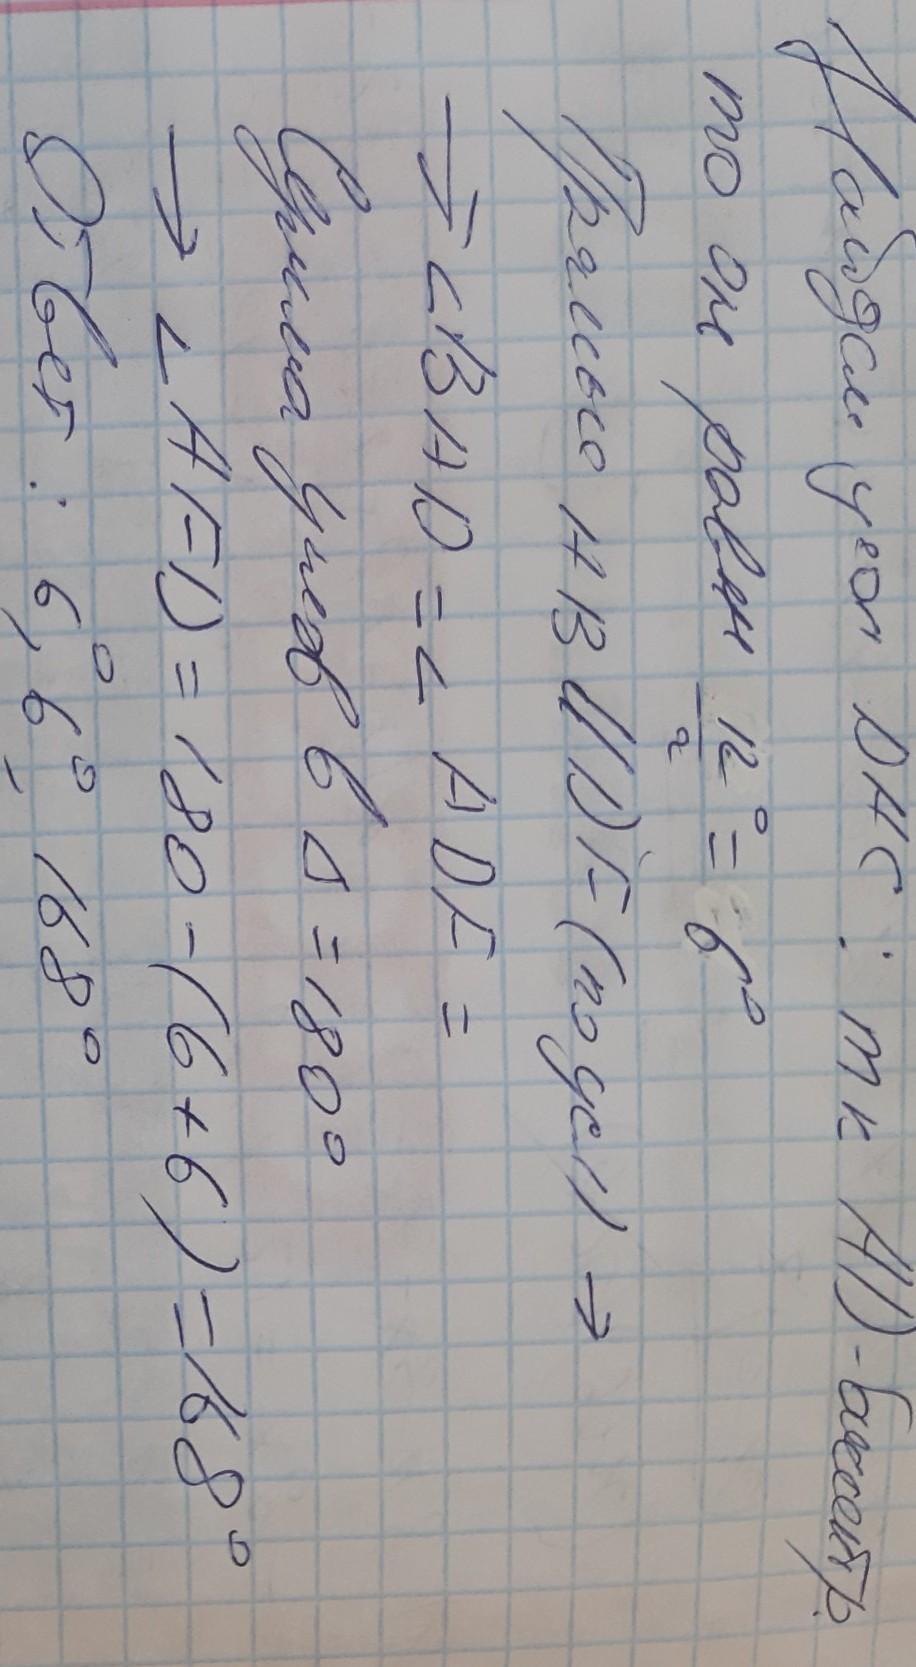 Найдем угол DAC: тк AD-биссектр
то он равен 12°/2 = 6°
Прямые AB и DF (по усл) →
→ ∠BAD = ∠ADF =
Сумма углов в Δ = 180°
→ ∠AFD = 180 - (6+6) = 168°
Ответ: 6°, 6°, 168°